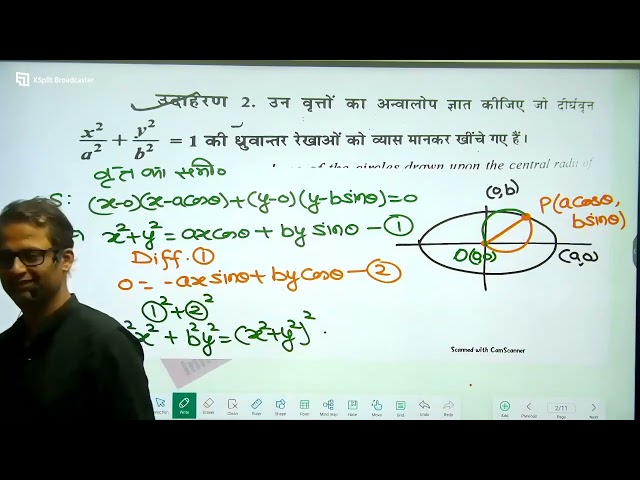 XSplit Broadcaster
उदाहरण 2. उन वृत्तों का अन्वालोप ज्ञात कीजिए जो दीर्घवृत्त
x²/a² + y²/b² = 1 की ध्रुवान्तर रेखाओं को व्यास मानकर खींचे गए हैं।
of the circles drawn upon the central radii of
वृत्त का समी०
S: (x-0)(x-acosθ)+(y-0)(y-bsinθ)=0
x²+y²=axcosθ+by sinθ-①
Diff. ①
0=-axsinθ+bycosθ-②
①²+②²
²x²+b²y²=(x²+y²)²
(0,b)
P(acosθ, bsinθ)
O(0,0)
Scanned with CamScanner
Write
Eraser
Clean
Ruler
Shape
Form
Mind Map
More
Grid
Undo
Redo
Add
Previous
2/11
Next